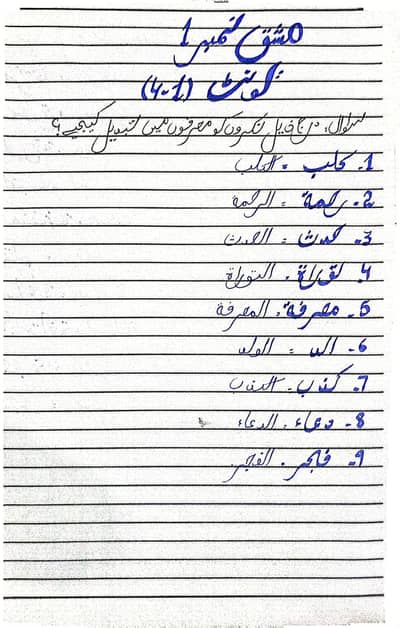 مشق نمبر 1
یونٹ (1-4)
سوال: درج ذیل نکروں کو معرفوں میں تبدیل کیجیے؟
1. کلب = الکلب
2. رحمة = الرحمة
3. حدث = الحدث
4. توراة. التوراة
5. معرفة. المعرفة
6. = الولد
7. کذب. الکذب
8. دعاء. الدعاء
9. فجر. الفجر